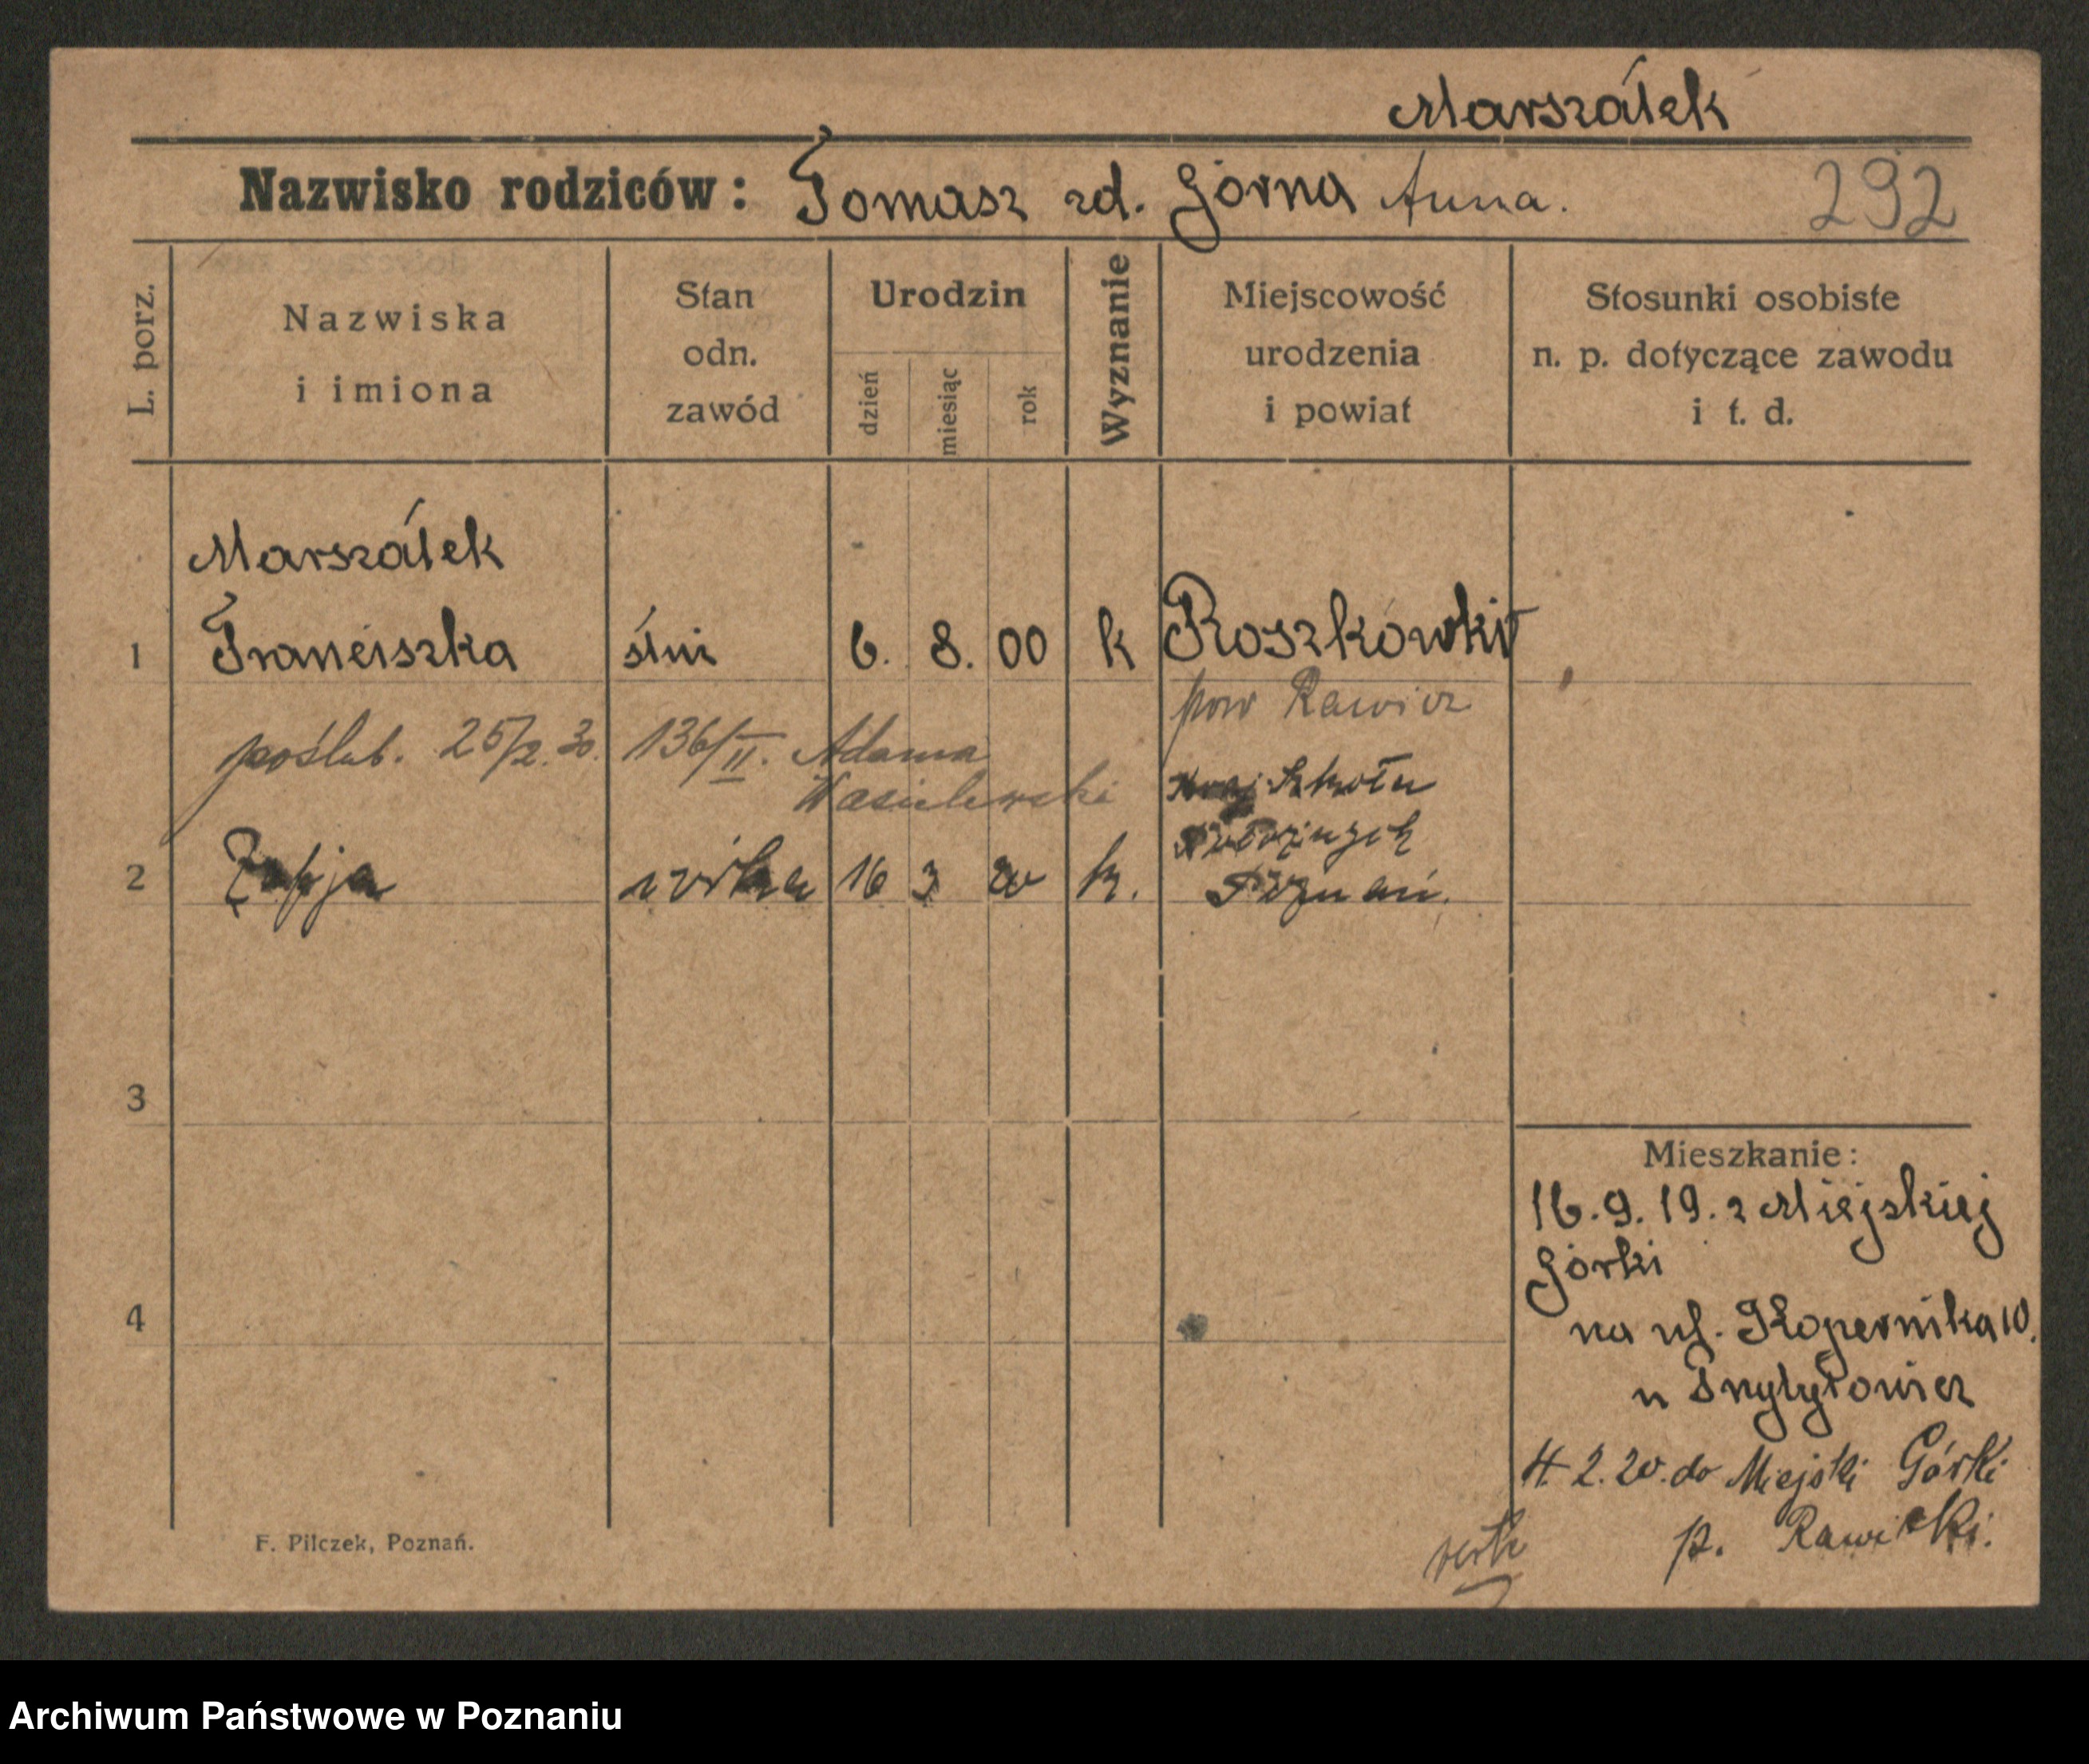 Marszałek
Nazwisko rodziców: Tomasz zd. Górna Anna.
292
L. porz.
Nazwiska
i imiona
Stan
odn.
zawód
Urodzin
dzień
miesiąc
rok
Wyznanie
Miejscowość
urodzenia
i powiat
Stosunki osobiste
n. p. dotyczące zawodu
i t. d.
Marszałek
1 Franciszka służ 6. 8. 00 k Roszkówko
pow Rawicz
poślub. 25/2. 30. 136/II. Adama
Wasielewski
Szkoła
Położnych
2 Zofja córka 16 3 20 k. Poznań.
3
4
Mieszkanie:
16.9.19. z Miejskiej
Górki
na ul. Kopernika 10.
u Przybyłowicz
4. 2. 20. do Miejski Górki
p. Rawicki.
F. Pilczek, Poznań.
Archiwum Państwowe w Poznaniu